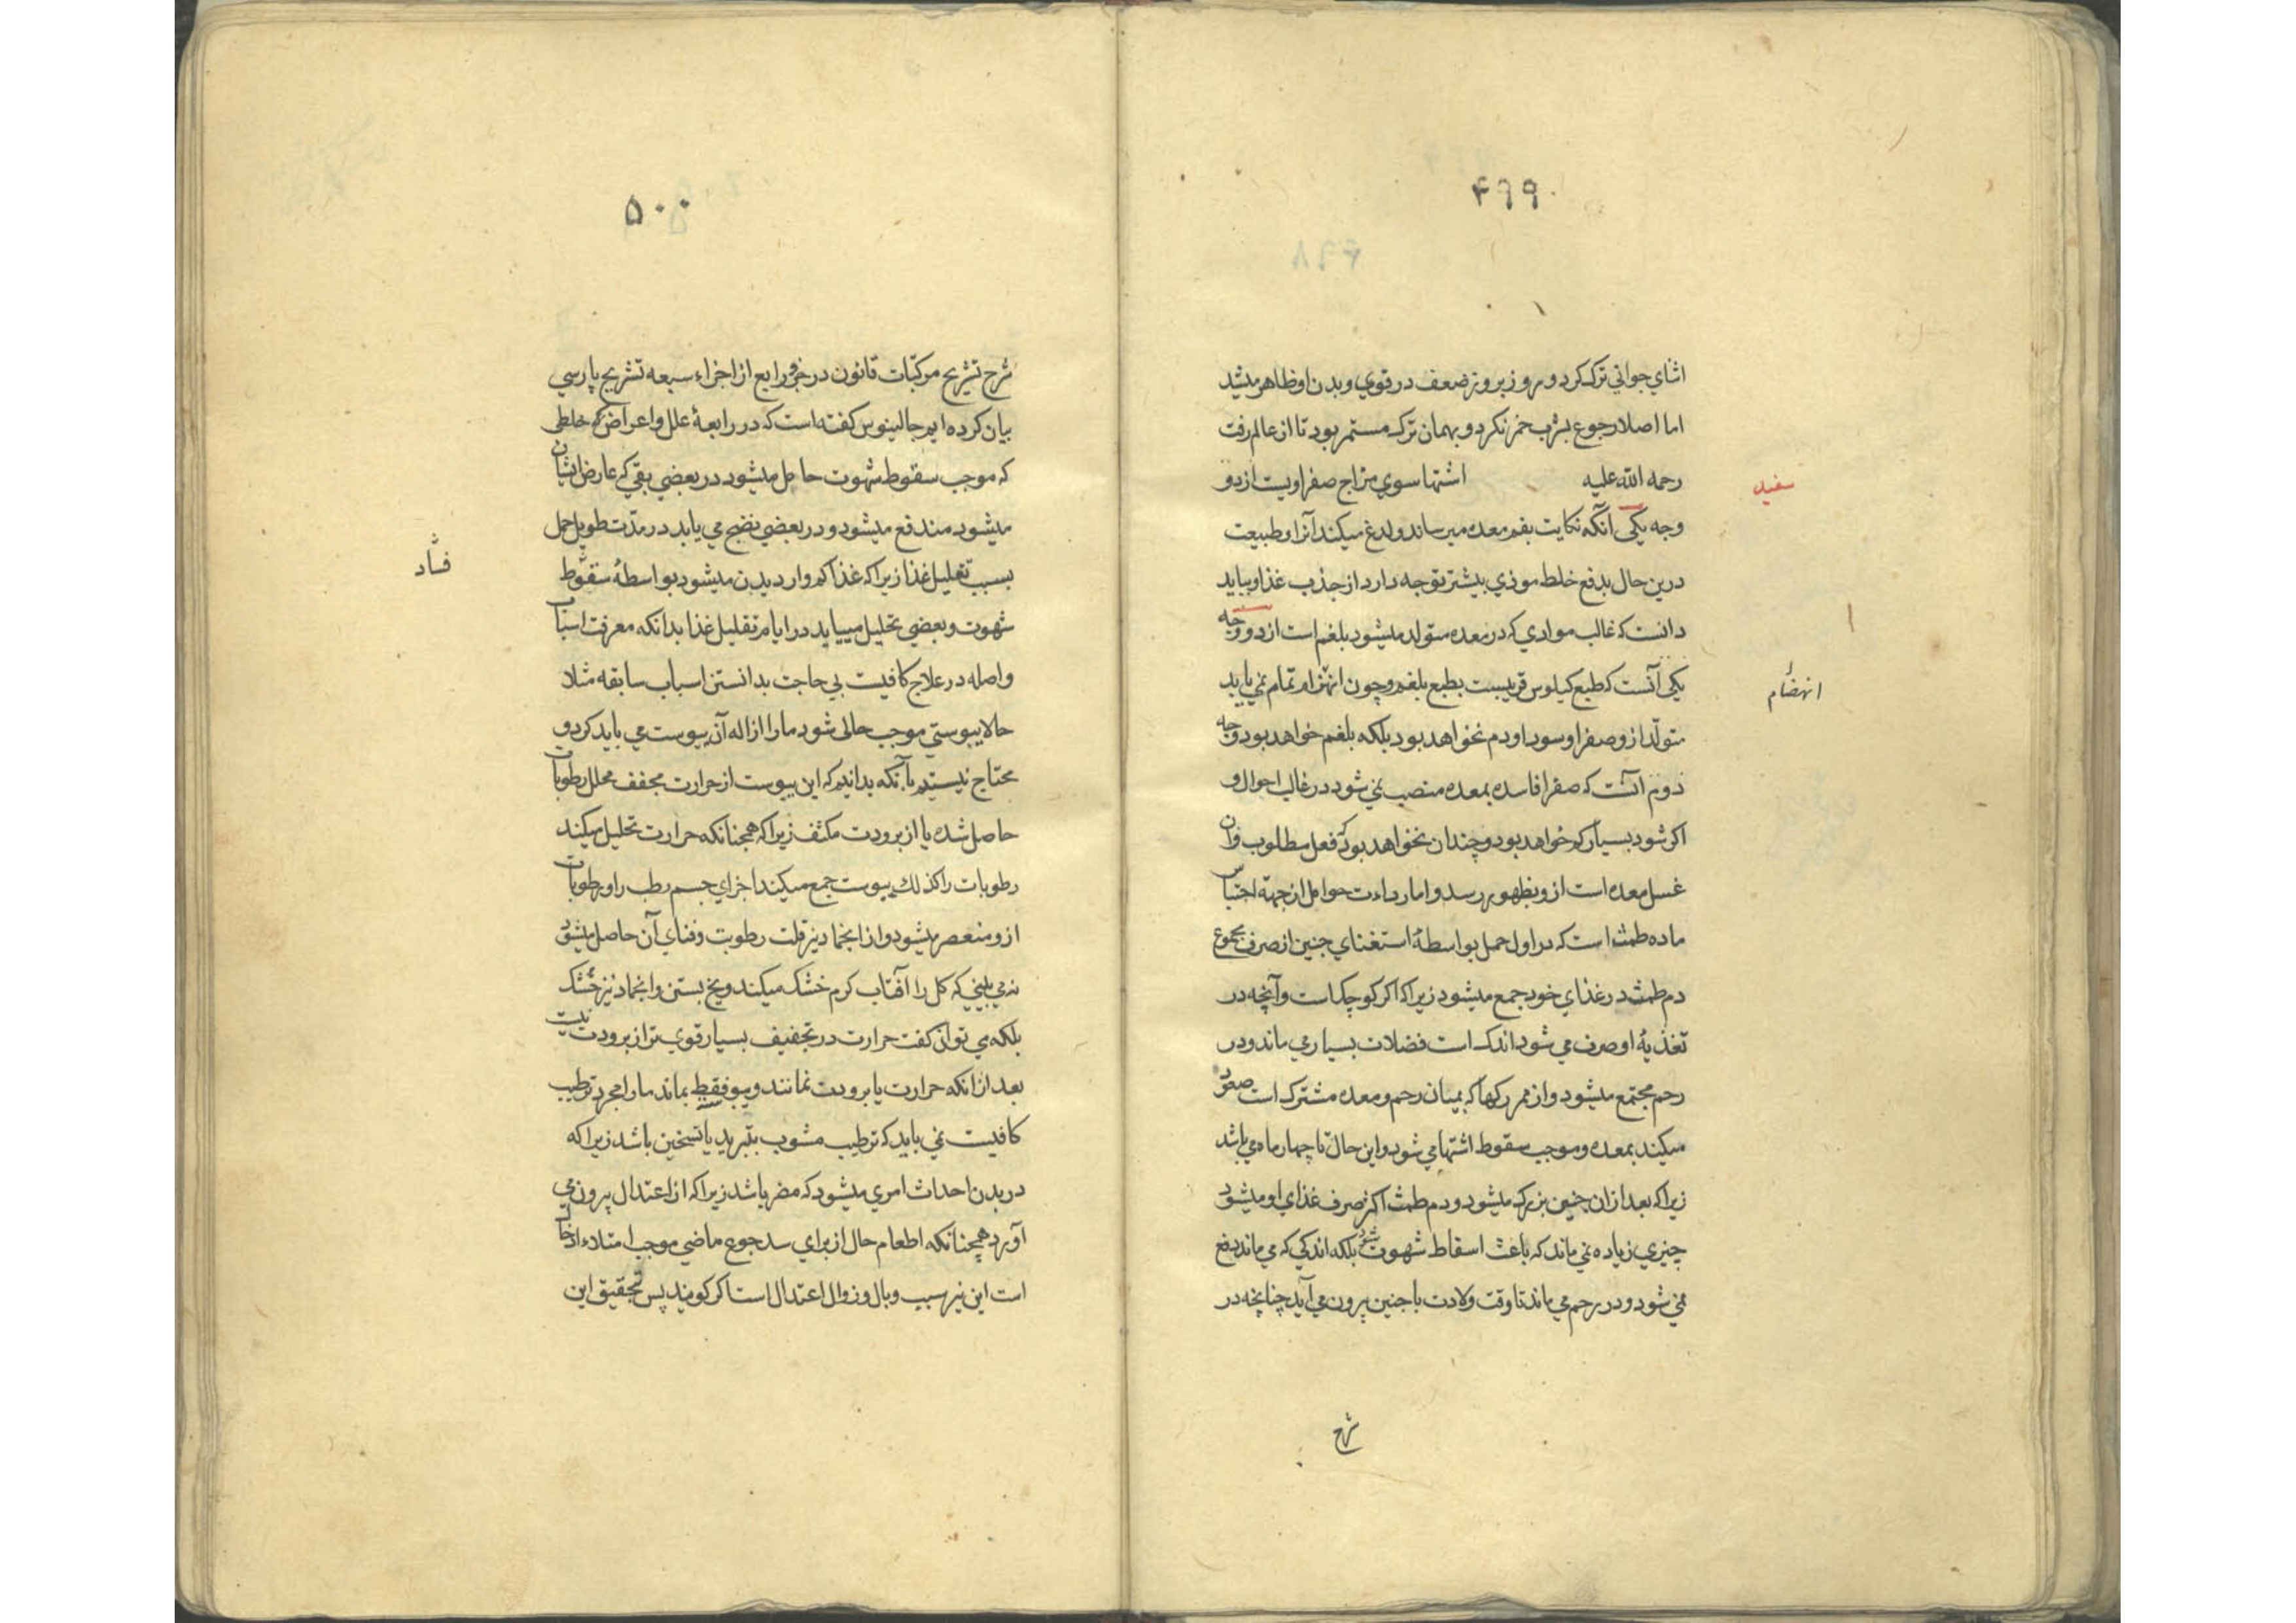 ۴۹۹
اثنای جوانی ترک کرد و روز بروز ضعف در قوی و بدن او ظاهر میشد
اما اصلا رجوع بشرب خمر نکرد و بهمان ترک مستمر بود تا از عالم رفت
رحمه الله علیه اشتها سوی مزاج صفراویست از دو
سفید
وجه یکی آنکه نکایت بفم معده میرساند و لدغ میکند آنرا و طبیعت
درین حال بدفع خلط موذی بیشتر توجه دارد از جذب غذا و بباید
دانست که غالب موادی که در معده متولد میشود بلغم است از دو وجه
یکی آنست که طبع کیلوس قریبست بطبع بلغم و چون انهزام تمام نمی یابد
انهضام
متولد ازو صفرا و سودا و دم نخواهد بود بلکه بلغم خواهد بود وجه
دوم آنست که صفرا فاسده بمعده منصب نمی شود در غالب احوال و
اکر شود بسیار کم خواهد بود و چندان نخواهد بود که فعل مطلوب و آن
غسل معده است ازو بظهور رسد و اما رداءت حوامل از جهة احتباس
ماده طمث است که در اول حمل بواسطهٔ استغنای جنین از صرف مجموع
دم طمث در غذای خود جمع میشود زیرا که اکر کوچک است و آنچه در
تغذیهٔ او صرف می شود اندک است فضلات بسیار می ماند و در
رحم مجتمع میشود و از ممر رکها که بمیان رحم و معده مشترک است صعود
میکند بمعده و موجب سقوط اشتها می شود و این حال تا چهار ماه می باشد
زیرا که بعد ازان جنین بزرک میشود و دم طمث اکثر صرف غذای او میشود
چیزی زیاده نمی ماند که باعث اسقاط شهوت شود بلکه اندکی که می ماند دفع
نمی شود و در رحم می ماند تا وقت ولادت با جنین بیرون می آید چنانچه در
شرح
۵۰۰
شرح تشریح مرکبات قانون در جزو رابع از اجزاء سبعه تشریح پارسی
بیان کرده ایم جالینوس کفته است که در رابعهٔ علل و اعراض که خلطی
که موجب سقوط شهوت حامل میشود در بعضی بقی که عارض ایشان
میشود مندفع میشود و در بعضی نضج می یابد در مدت طویل حمل
بسبب تقلیل غذا زیرا که غذا کم وارد بدن میشود بواسطهٔ سقوط
فساد
شهوت و بعضی تحلیل مییابد در ایام تقلیل غذا بدانکه معرفت اسباب
واصله در علاج کافیست بی حاجت بدانستن اسباب سابقه مثلا
حالا یبوستی موجب حالی شود ما را ازاله آن یبوست می باید کرد و
محتاج نیستیم بآنکه بدانیم که این یبوست از حرارت مجفف محلل رطوبات
حاصل شده یا از برودت مکثف زیرا که همچنانکه حرارت تحلیل میکند
رطوبات را کذلک یبوست جمع میکند اجزای جسم رطب را و رطوبات
ازو منعصر میشود و از انجماد نیز قلت رطوبت و فنای آن حاصل میشود
نه می بینی که کل را آفتاب کرم خشک میکند و یخ بستن و انجماد نیز خشک
بلکه می توان کفت حرارت در تجفیف بسیار قوی تر از برودت نیست
بعد ازانکه حرارت یا برودت نمانند و یبو فقط بماند ما را مجرد ترطیب
کافیست نمی باید که ترطیب مشوب بتبرید یا تسخین باشد زیرا که
در بدن احداث امری میشود که مضر باشد زیرا که از اعتدال بیرون می
آورد همچنانکه اطعام حال از برای سد جوع ماضی موجب امتلاء
است این نیز سبب وبال و زوال اعتدال است اکر کویند پس تحقیق این